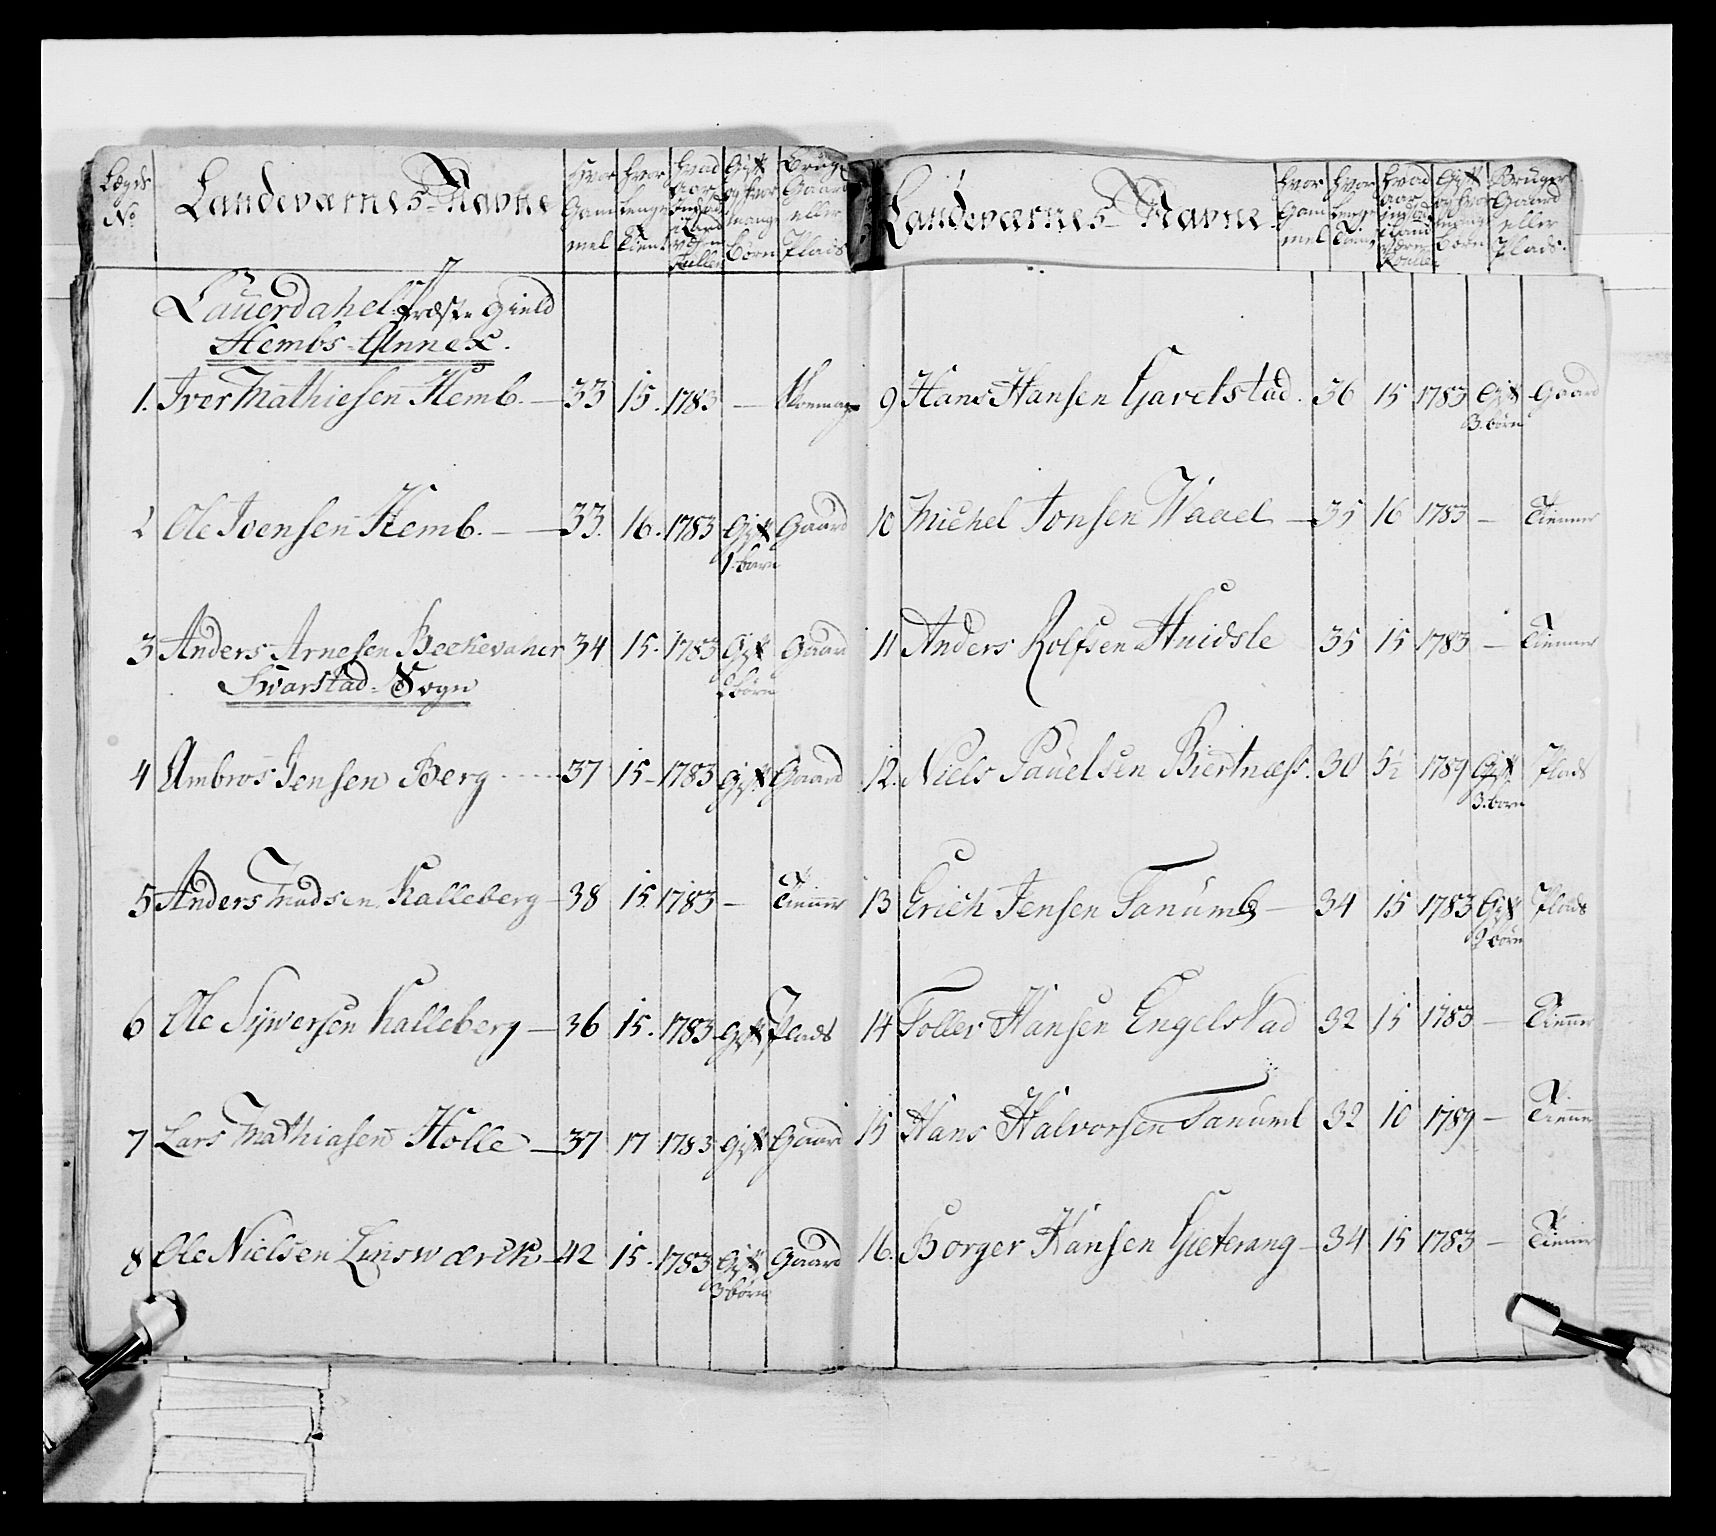 Lægds No Landeværnes Navne Hvor Gammel Hvor lenge Tient Hvad Aar indad Land værn Rullen Gift og hvor mange Børn Bruger Gaard eller Plads
Lauerdahels Præste Gield
Hembs Annex.
1. Iver Mathiesen Hemb. — 33 15. 1783 —
2 Ole Ivensen Hemb. — 33. 16. 1783 Gift Gaard
1. barn
3 Anders Arnesen Beckevaher 34 15. 1783 Gift Gaard
2 børn
Svarstad Sogn
4 Ambros Jensen Berg 37 15 - 1783 Gift Gaard
5 Anders Madsen Kalleberg - 38 15. 1783 — Tienner
6 Ole Syversen Kalleberg — 36 15. 1783 Gift Plads
7 Lars Mathiasen Holle — 37 17 1783 Gift Gaard
8 Ole Nielsen Linswærck. — 42 15. 1783 Gift Gaard
3 børn
Landeværnes Navne Hvor Gammel Hvor lenge Tient Hvad Aar ind i Land Værn Roullen Gift og hvor mange Børn Bruger Gaard eller Plads.
9 Hans Hansen Gavelstad. 36 15 1783 Gift Gaard
3. børn
10 Michel Jonsen Waael — 35 16 1783 — Tienner
11 Anders Rolfsen Huidsle 35 15 1783 — Tienner
12. Niels Pauelsen Biertnæss. 30 5½ 1789 Gift Plads
3. børn
13 Erich Jensen Fanumb — 34 15 1783 Gift Plads
2 børn
14 Foller Hansen Engelstad 32 15 1783 — Tienner
15 Hans Halvorsen Fanuml 32 10 1789 — Tienner
16. Borger Hansen Gieterang — 34 15 1783 — Tienner